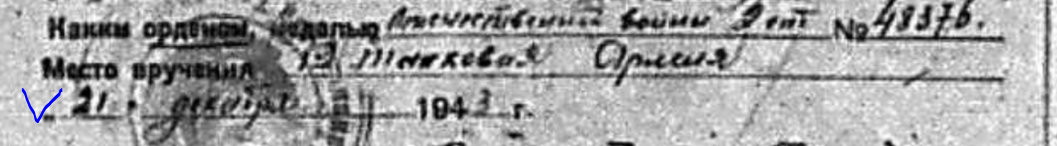 Каким орденом, медалью Отечественной войны 2 ст № 48376.
Место вручения 12 Танковая Армия
21 декабря 1943 г.